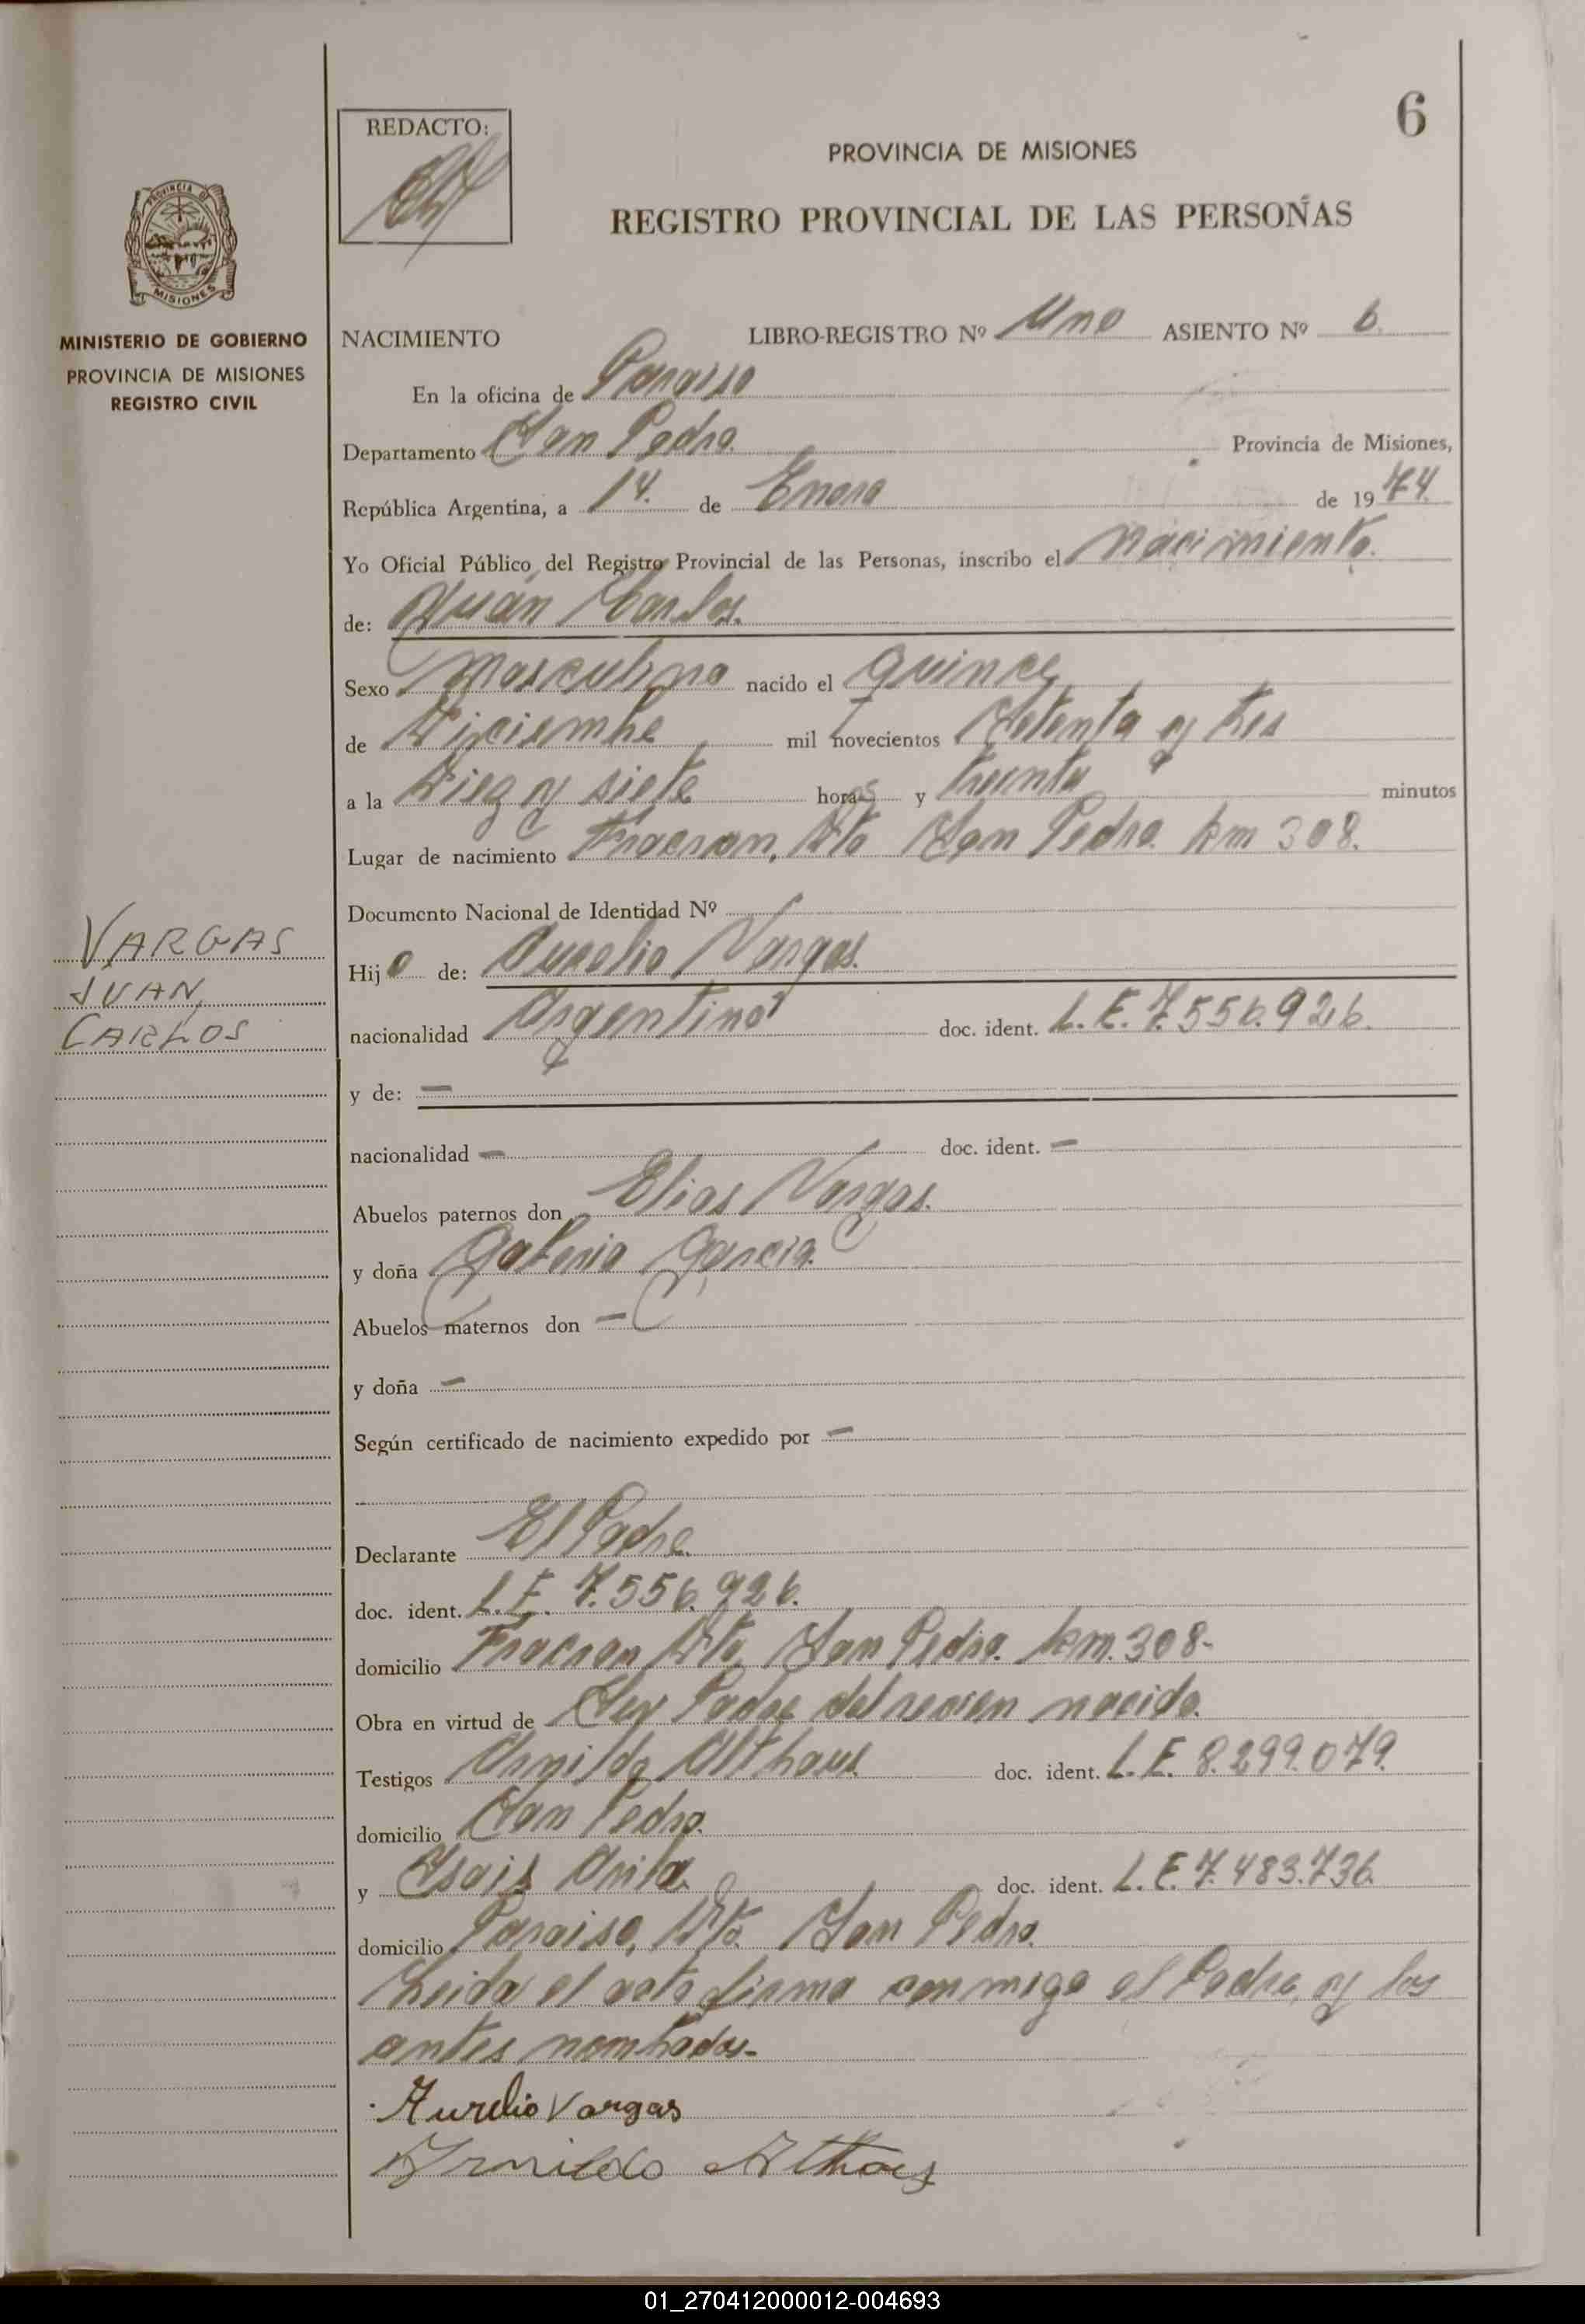 6
REDACTO:
PROVINCIA DE MISIONES
REGISTRO PROVINCIAL DE LAS PERSONAS
PROVINCIA DE
MISIONES
MINISTERIO DE GOBIERNO
PROVINCIA DE MISIONES
REGISTRO CIVIL
NACIMIENTO LIBRO-REGISTRO Nº Uno ASIENTO Nº 6.
En la oficina de Paraiso
Departamento San Pedro. Provincia de Misiones,
República Argentina, a 14. de Enero de 1974.
Yo Oficial Público del Registro Provincial de las Personas, inscribo el Nacimiento.
de: Juan Carlos.
Sexo Masculino nacido el Quince
de Diciembre mil novecientos Setenta y tres
a la Diez y siete horas y treinta minutos
Lugar de nacimiento Fracran, Dto San Pedro. km 308.
Documento Nacional de Identidad Nº
VARGAS
JUAN,
CARLOS
Hijo de: Aurelio Vargas.
nacionalidad Argentino doc. ident. L.E. 7.556.926.
y de: —
nacionalidad — doc. ident. —
Abuelos paternos don Elias Vargas.
y doña Garcia.
Abuelos maternos don —
y doña —
Según certificado de nacimiento expedido por —
Declarante El Padre.
doc. ident. L.E. 7.556.926.
domicilio Fracran Dto. San Pedro. km. 308-
Obra en virtud de Ser Padre del recien nacido.
Testigos Arnildo Althaus doc. ident. L.E. 8.299.079.
domicilio San Pedro.
y Isais doc. ident. L.E. 7.483.736.
domicilio Paraiso, Dto. San Pedro.
Leida el acta firma conmigo el Padre, y los
antes nombrados-
Aurelio Vargas
Arnildo Althaus
01_270412000012-004693